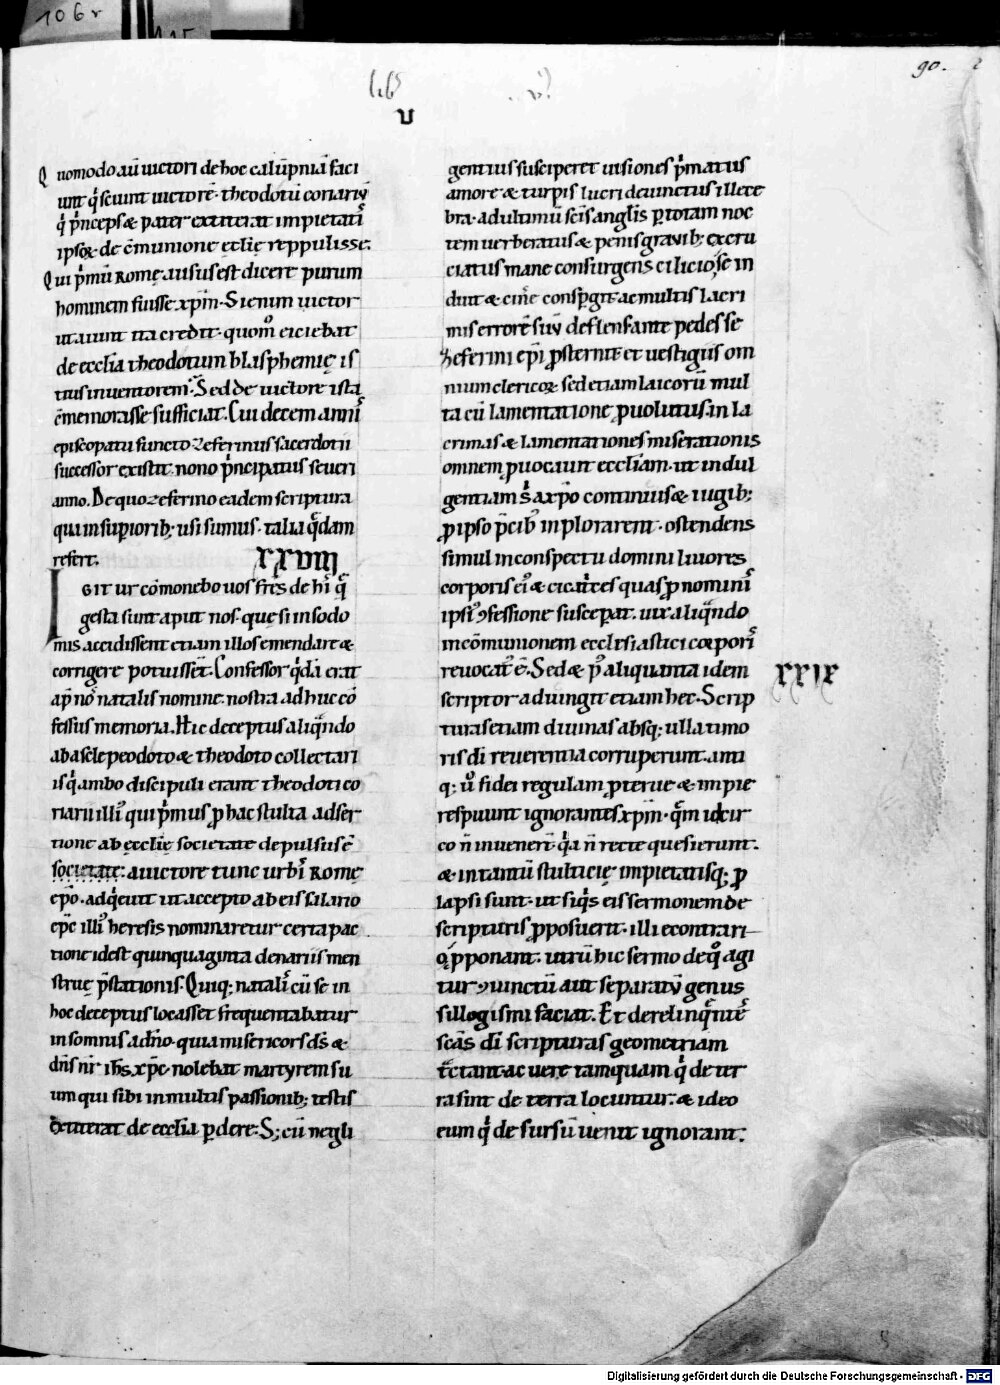 106r
115
90.
lib' v'
U
Quomodo aũ uictori de hoc calũpniã faci
unt qͥ sciunt uictorẽ· theodotũ coriariũ
qͥ pͥnceps & pater extiterat impietatiͥ
ipsoꝝ· de cõmunione ecclię reppulisse.
Qui pͥmũ Romę ausus est dicere purum
hominem fuisse xp̃m· Si enim uictor
ut aiunt ita credit· quomͦ eiciebat
de eccl̃ia theodotum blasphemię is
tius inuentorem. Sed de uictore ista
cõmemorasse sufficiat. Cui decem anniͥ
episcopatu functo Zeferinus sacerdotii
successor existit· nono pͥncipatus seueri
anno. De quo zeferino eadem scriptura
qua in supiorib; usi sumus· talia qͣdam
refert. XXVIII
Igitur cõmonebo uos fr̃s de hiͥ qͣ
gesta sunt aput nos· quę si in sodo
mis accidissent etiam illos emendare &
corrigere potuissẽt. Confessor qͥdã erat
ap̃ nõ natalis nomine· nostra adhuc cõ
fessus memoria. Hic deceptus aliqͣndo
ab asclepeodoto & theodoto collectari
is qͥ ambo discipuli erant theodoti co
riarii illiͥ qui pͥmus ꝓ hac stulta adser
tione ab ęcclię societate depulsus ẽ
societate: a uictore tunc urbiͥ Romę
ep̃o· adqͥeuit ut accepto ab eis salario
ep̃c illiͥ heresis nominaretur certa pac
tione id est quinquaginta denariis men
struę p̃stationis. Quiq; nataliͥ cũ se in
hoc deceptus locasset frequentabatur
in somnis a dño· quia misericors dš &
dñs nr̃ ihs xp̃c nolebat martyrem su
um qui sibi in multis passionib; testis
extiterat de eccl̃ia ꝑdere· S; cũ negli
gentius susciperet uisiones pͥmatus
amore & turpis lucri deuinctus illece
bra· ad ultimũ sc̃is anglis ꝑ totam noc
tem uerberatus & penis grauib; excru
ciatus mane consurgens cilicio se in
duit & cinẽ conspͣgit· ac multis lacri
mis errorẽ suũ deflens ante pedes se
Zeferini ep̃i ꝓsternit et uestigiis om
nium clericoꝝ sed etiam laicorũ mul
ta cũ lamentatione ꝓuolutus. in la
crimas & lamentationes miserationis
omnem ꝓuocauit eccl̃iam· ut indul
gentiam s̃ a xp̃o continuis & iugib;
ꝓ ipso pͥcib' inplorarent· ostendens
simul in conspectu domini liuores
corporis eiͥ & cicatͥces quas ꝓ nominiͥ
ipsiͥ ꝯfessione susceperat. uix aliqͣndo
in cõmunionem ecclesiastici corporiͥ
reuocatͥ ẽ. Sed & pͥ aliquanta idem
scriptor adiungit etiam hec· Scrip
XXIX
turas etiam diuinas absq; ulla timo
ris di reuerentia corruperunt· anti
q; ũ fidei regulam ꝓterue & impie
respuunt ignorantes xp̃m· qͣm idcir
co ñ inuenerͭ· qͥa ñ recte quesierunt.
& in tantũ stulticię impietatisq; ꝓ
lapsi sunt· ut siqͥs eis sermonem de
scripturis ꝓposuerit· illi econtrari
o ꝓponant· utrũ hic sermo de qͦ agi
tur ꝯiunctũ aut separatũ genus
sillogismi faciat. Et derelinqͣnteͥ
scãs di scripturas geometriam
tͣctant· ac uere tamquam qͥ de ter
ra sint de terra locuntur· & ideo
eum qͥ de sursũ uenit ignorant:
Digitalisierung gefördert durch die Deutsche Forschungsgemeinschaft - DFG